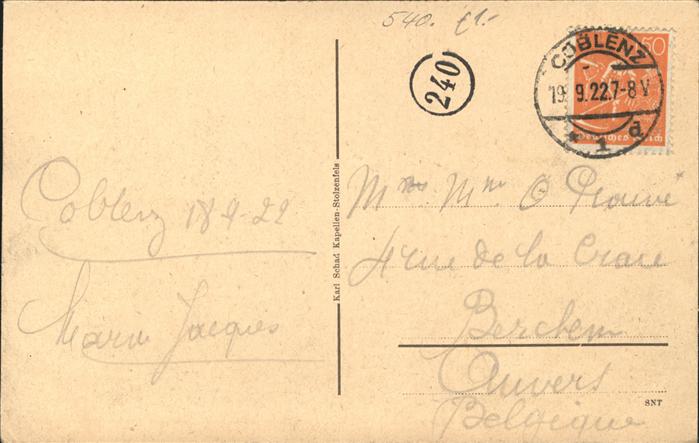 540. £1.-
240
COBLENZ
19. 9.22.7-8 V
* 1 d
50
Deutsches Reich
Coblenz 18 9-22
Marie Jacques
Karl Schad Kapellen-Stolzenfels
Mr Mme O Prouvé
4 rue de la
Berchem
Anvers
Belgique
SNT